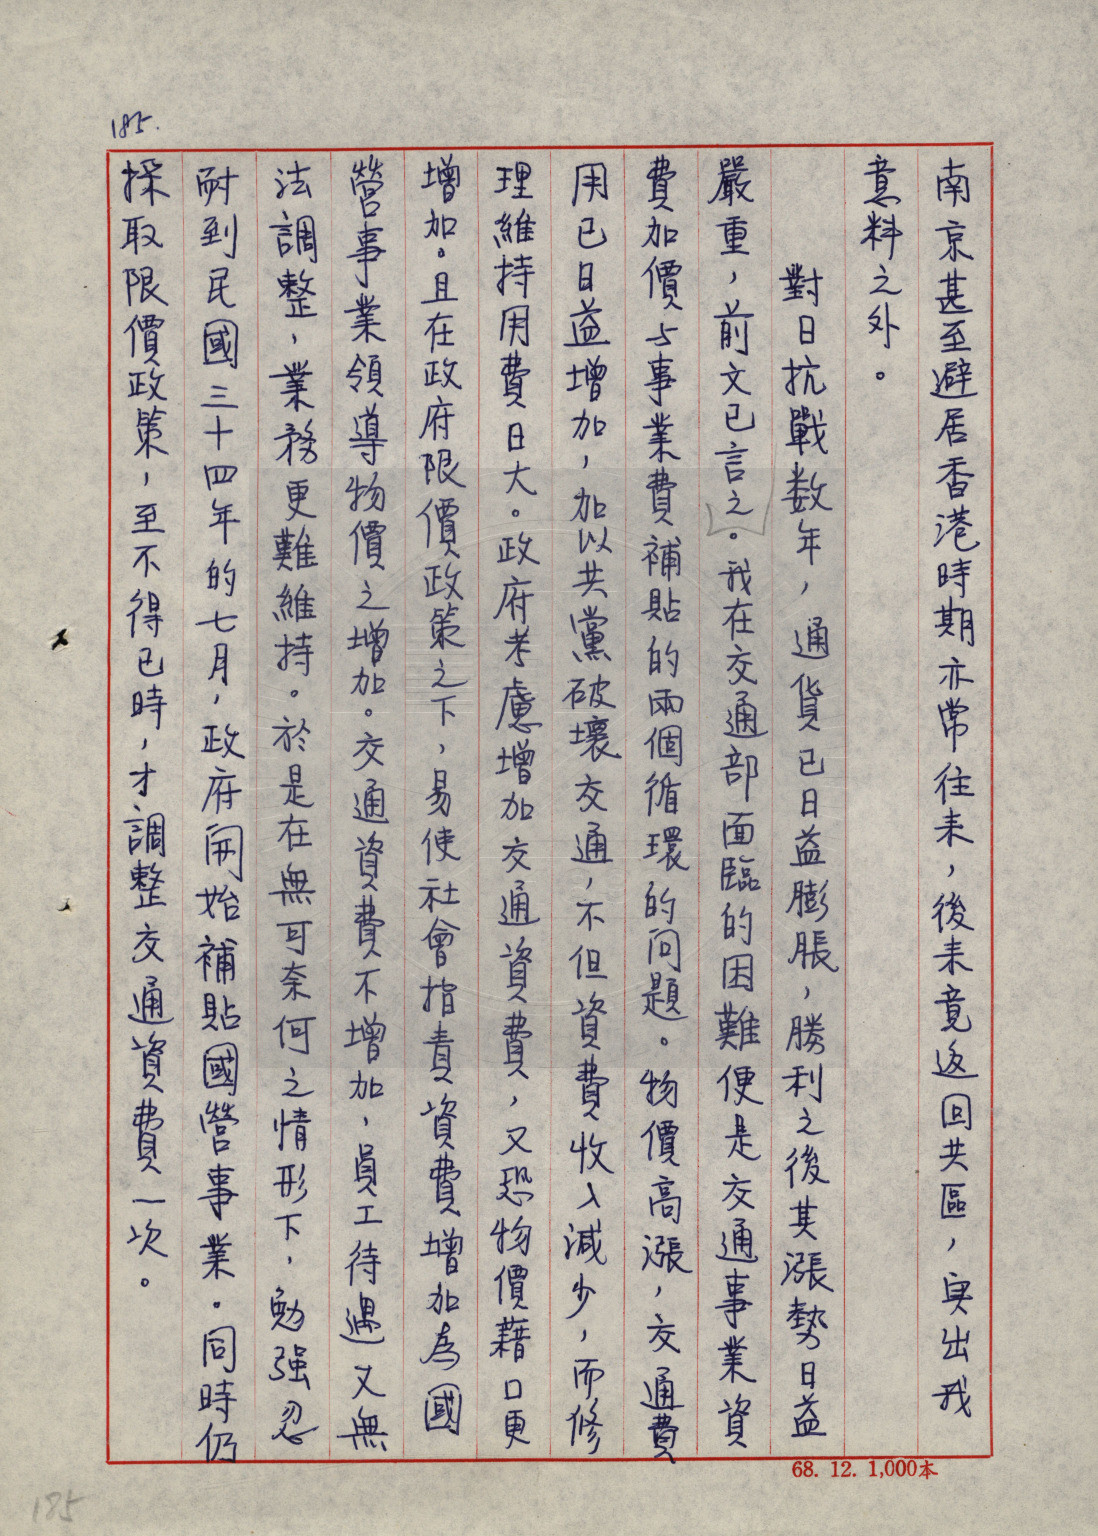 185.
南京甚至避居香港時期亦常往来，後来竟返回共區，奥出我
意料之外。
對日抗戰数年，通貨已日益膨脹，勝利之後其漲勢日益
嚴重，前文已言之。我在交通部面臨的困難便是交通事業資
費加價与事業費補貼的兩個循環的问題。物價高漲，交通費
用已日益增加，加以共黨破壞交通，不但資費收入減少，而修
理維持用費日大。政府考慮增加交通資費，又恐物價藉口更
增加。且在政府限價政策之下，易使社會指責資費增加為國
營事業領導物價之增加。交通資費不增加，員工待遇又無
法調整，業務更難維持。於是在無可奈何之情形下，勉强忍
耐到民國三十四年的七月，政府開始補貼國營事業。同時仍
採取限價政策，至不得已時，才調整交通資費一次。
68. 12. 1,000本
185